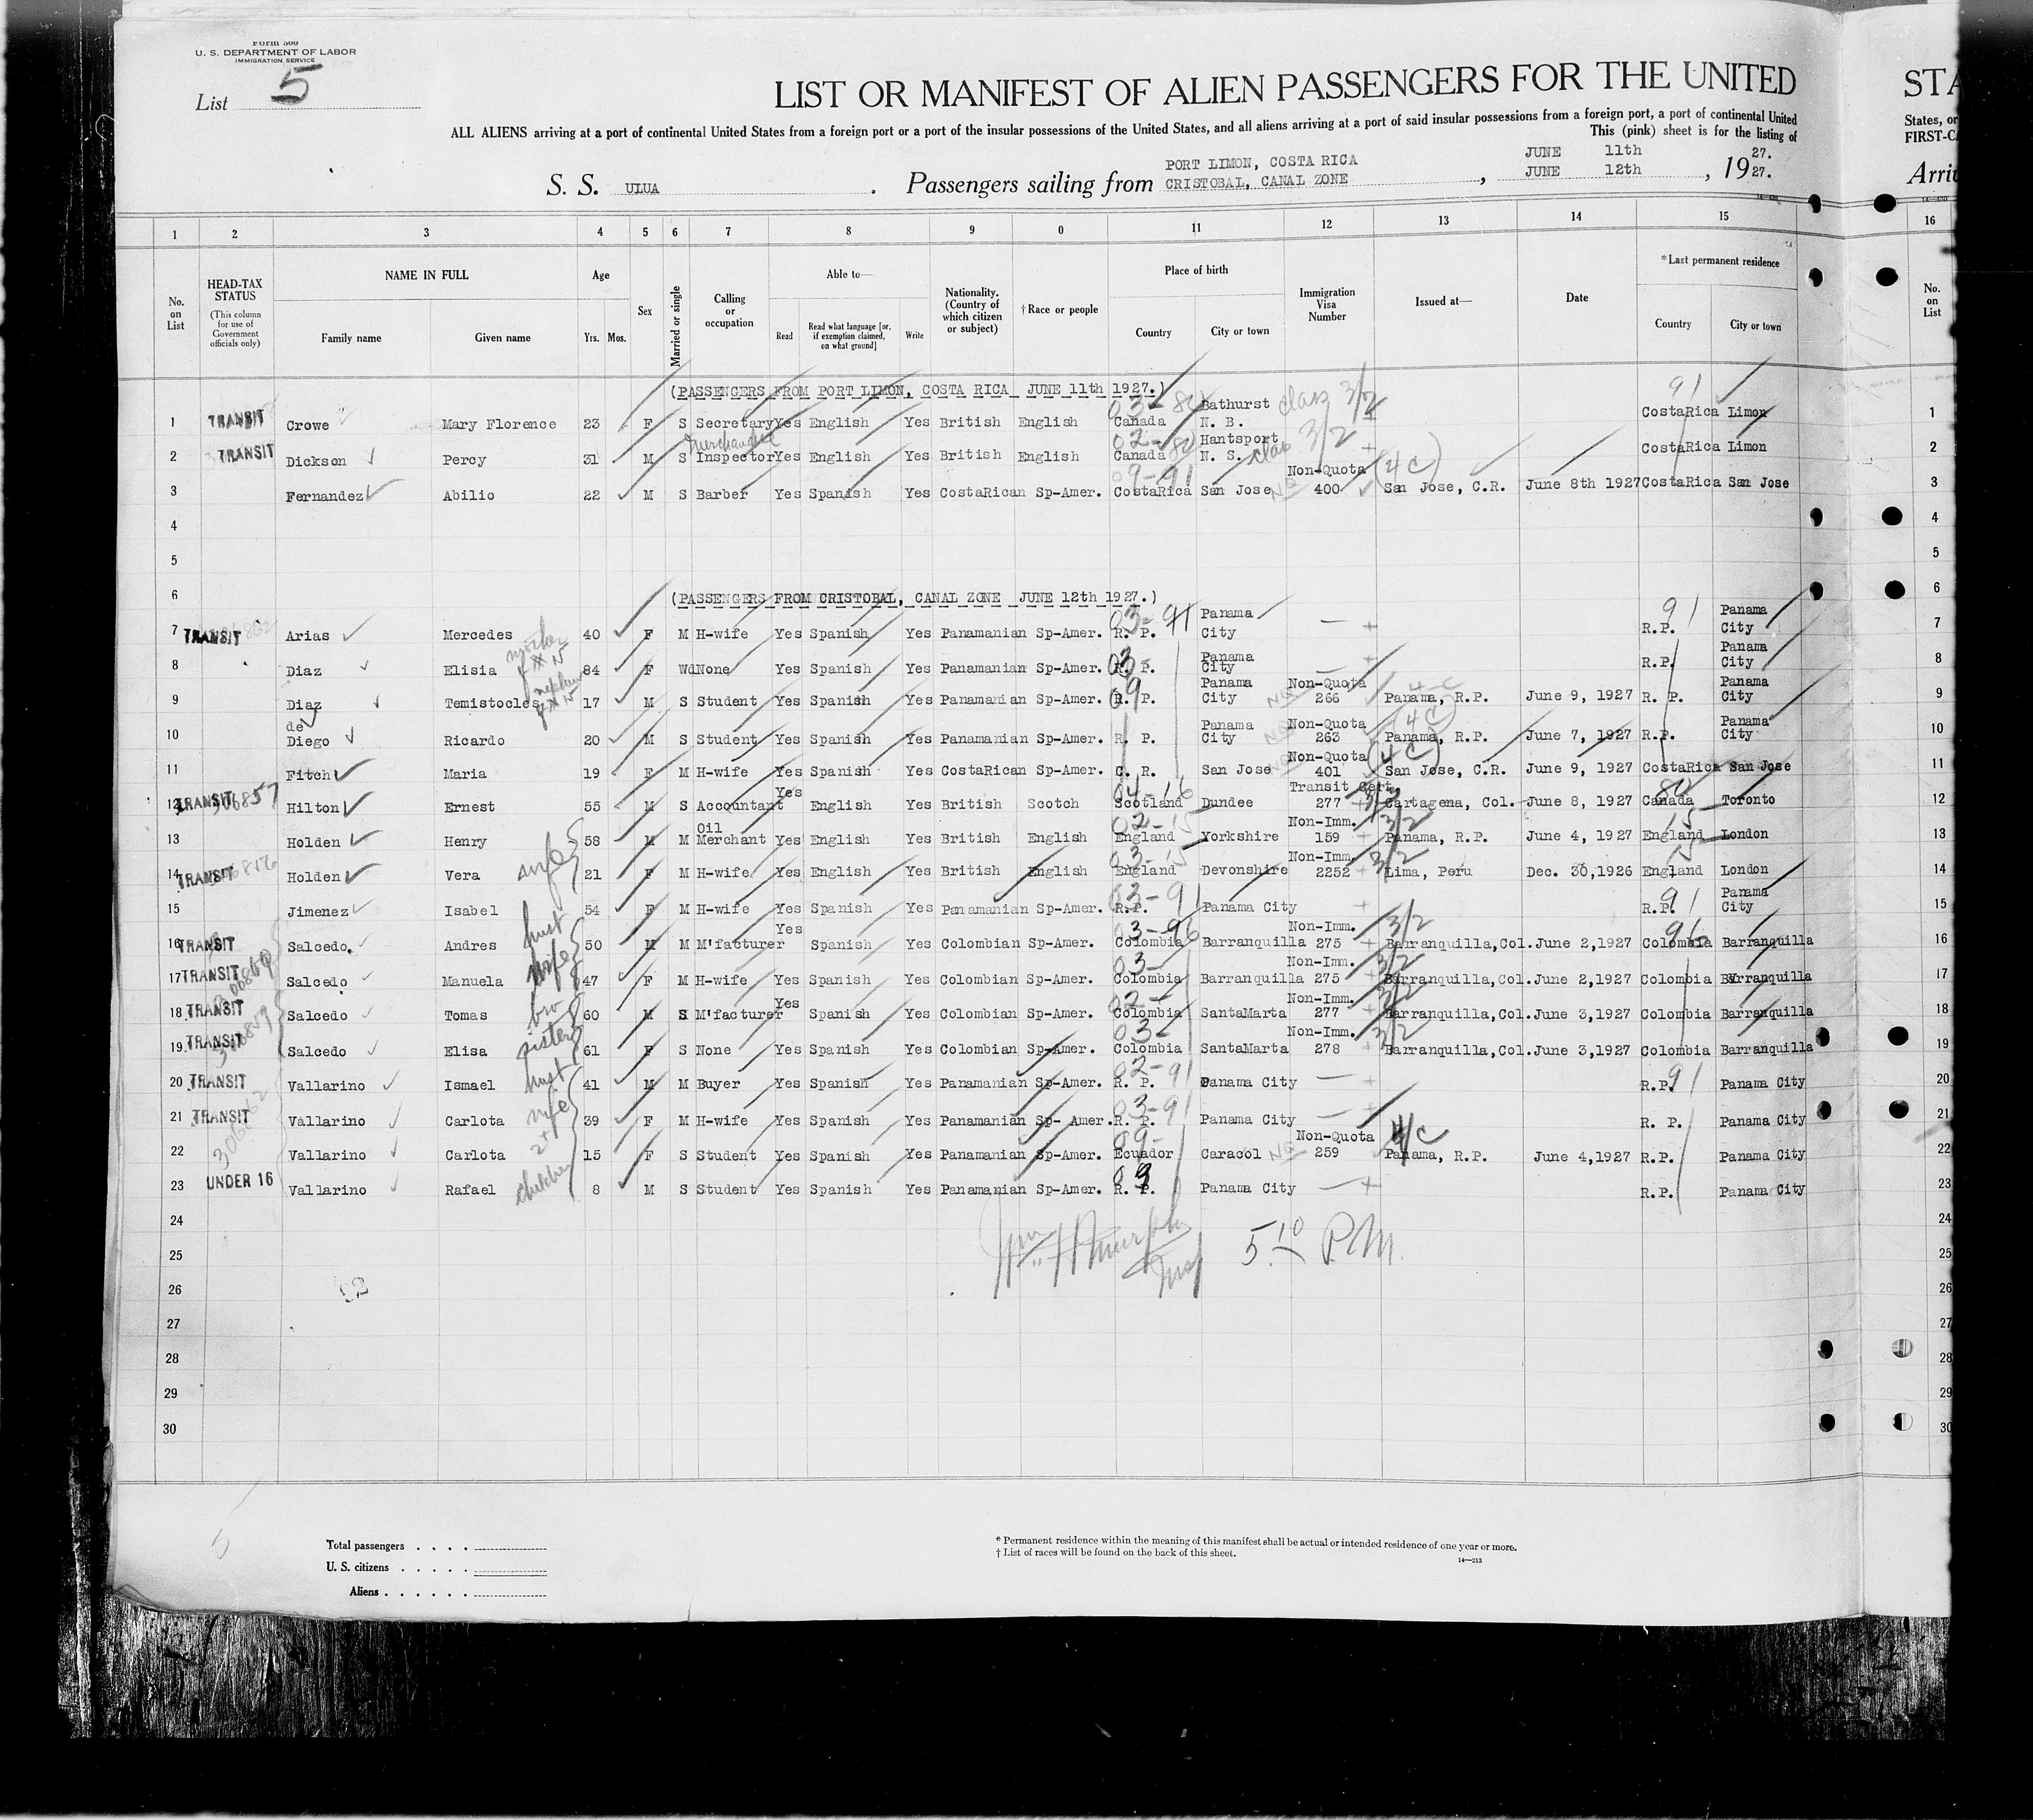 Form 500
U. S. DEPARTMENT OF LABOR
IMMIGRATION SERVICE
List 5
LIST OR MANIFEST OF ALIEN PASSENGERS FOR THE UNITED STA
ALL ALIENS arriving at a port of continental United States from a foreign port or a port of the insular possessions of the United States, and all aliens arriving at a port of said insular possessions from a foreign port, a port of continental United States, or
This (pink) sheet is for the listing of FIRST-CA
S. S. ULUA. Passengers sailing from PORT LIMON, COSTA RICA JUNE 11th 27.
CRISTOBAL, CANAL ZONE, JUNE 12th, 1927. Arri
1 2 3 4 5 6 7 8 9 0 11 12 13 14 15 16
No. on List HEAD-TAX STATUS (This column for use of Government officials only) NAME IN FULL Family name Given name Age Yrs. Mos. Sex Married or single Calling or occupation Able to— Read Read what language [or, if exemption claimed, on what ground] Write Nationality. (Country of which citizen or subject) †Race or people Place of birth Country City or town Immigration Visa Number Issued at— Date *Last permanent residence Country City or town No. on List
(PASSENGERS FROM PORT LIMON, COSTA RICA JUNE 11th 1927.) 91
1 TRANSIT Crowe Mary Florence 23 F S Secretary Yes English Yes British English 03-80 Canada Bathurst N. B. class 3/2 CostaRica Limon 1
2 TRANSIT Dickson Percy 31 M S merchandise Inspector Yes English Yes British English 02-80 Canada Hantsport N. S. class 3/2 CostaRica Limon 2
3 Fernandez Abilio 22 M S Barber Yes Spanish Yes CostaRican Sp-Amer. 09-91 CostaRica San Jose NQ Non-Quota 400 (4c) San Jose, C.R. June 8th 1927 CostaRica San Jose 3
4 4
5 5
6 (PASSENGERS FROM CRISTOBAL, CANAL ZONE JUNE 12th 1927.) 6
7 TRANSIT Arias Mercedes 40 F M H-wife Yes Spanish Yes Panamanian Sp-Amer. 03-91 R. P. Panama City — 91 R.P. Panama City 7
8 Diaz Elisia mother 84 F Wd None Yes Spanish Yes Panamanian Sp-Amer. 03- R. P. Panama City — R.P. Panama City 8
9 Diaz Temistocles nephew 17 M S Student Yes Spanish Yes Panamanian Sp-Amer. 09 R. P. Panama City NQ Non-Quota 266 4-c Panama, R.P. June 9, 1927 R. P. Panama City 9
10 de Diego Ricardo 20 M S Student Yes Spanish Yes Panamanian Sp-Amer. R. P. Panama City NQ Non-Quota 263 (4c) Panama, R.P. June 7, 1927 R.P. Panama City 10
11 Fitch Maria 19 F M H-wife Yes Spanish Yes CostaRican Sp-Amer. C. R. San Jose NQ Non-Quota 401 (4c) San Jose, C.R. June 9, 1927 CostaRica San Jose 11
12 TRANSIT 306857 Hilton Ernest 55 M S Accountant Yes English Yes British Scotch 04-16 Scotland Dundee Transit Cert. 277 3/2 Cartagena, Col. June 8, 1927 80 Canada Toronto 12
13 Holden Henry 58 M M Oil Merchant Yes English Yes British English 02-15 England Yorkshire Non-Imm. 159 3/2 Panama, R.P. June 4, 1927 15 England London 13
14 TRANSIT 306856 Holden Vera wife 21 F M H-wife Yes English Yes British English 03-15 England Devonshire Non-Imm. 2252 3/2 Lima, Peru Dec. 30, 1926 15 England London 14
15 Jimenez Isabel 54 F M H-wife Yes Spanish Yes Panamanian Sp-Amer. 03-91 R.P. Panama City 91 R.P. Panama City 15
16 TRANSIT Salcedo. Andres hust 50 M M M'facturer Yes Spanish Yes Colombian Sp-Amer. 03-96 Colombia Barranquilla Non-Imm. 275 3/2 Barranquilla,Col. June 2,1927 96 Colombia Barranquilla 16
17 TRANSIT Salcedo Manuela wife 47 F M H-wife Yes Spanish Yes Colombian Sp-Amer. 03- Colombia Barranquilla Non-Imm. 275 3/2 Barranquilla,Col. June 2,1927 Colombia Barranquilla 17
18 TRANSIT Salcedo Tomas bro 60 M S M'facturer Yes Spanish Yes Colombian Sp-Amer. 02- Colombia SantaMarta Non-Imm. 277 3/2 Barranquilla,Col. June 3,1927 Colombia Barranquilla 18
19. TRANSIT 306859 Salcedo Elisa sister 61 F S None Yes Spanish Yes Colombian Sp-Amer. 03- Colombia SantaMarta Non-Imm. 278 3/2 Barranquilla,Col. June 3,1927 Colombia Barranquilla 19
20 TRANSIT Vallarino Ismael hust 41 M M Buyer Yes Spanish Yes Panamanian Sp-Amer. 02-91 R. P. Panama City — R.P. 91 Panama City 20
21 TRANSIT Vallarino Carlota wife 39 F M H-wife Yes Spanish Yes Panamanian Sp- Amer. 03-91 R. P. Panama City — R. P. Panama City 21
22 Vallarino Carlota 2 15 F S Student Yes Spanish Yes Panamanian Sp-Amer. 09- Ecuador Caracol NQ Non-Quota 259 4/c Panama, R.P. June 4,1927 R.P. Panama City 22
23 UNDER 16 Vallarino Rafael children 8 M S Student Yes Spanish Yes Panamanian Sp-Amer. 09 R. P. Panama City — R.P. Panama City 23
24 24
Wm. H Murphy Insp 5.10 P.M.
25 25
26 26
27 27
28 28
29 29
30 30
5
Total passengers . . . .
U. S. citizens . . . . .
Aliens . . . . . .
* Permanent residence within the meaning of this manifest shall be actual or intended residence of one year or more.
† List of races will be found on the back of this sheet.
14—213